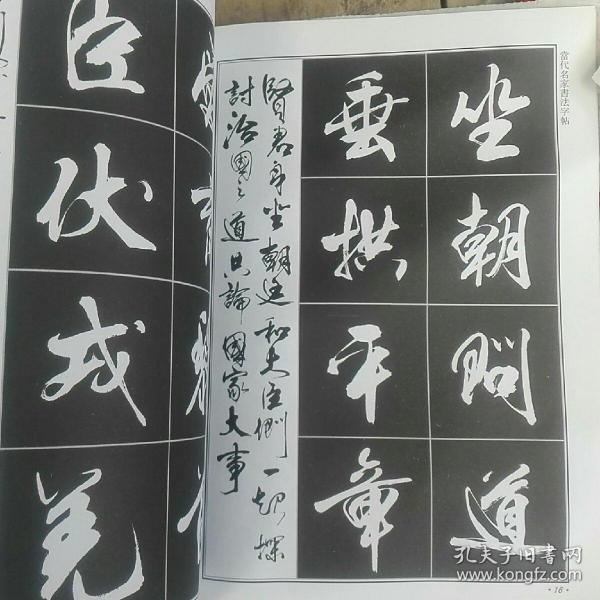 當代名家書法字帖
坐朝問道
垂拱平章
賢君身坐朝廷和大臣們一起探
討治國之道共論國家大事
臣伏戎羌
·16·
孔夫子旧书网
www.kongfz.com